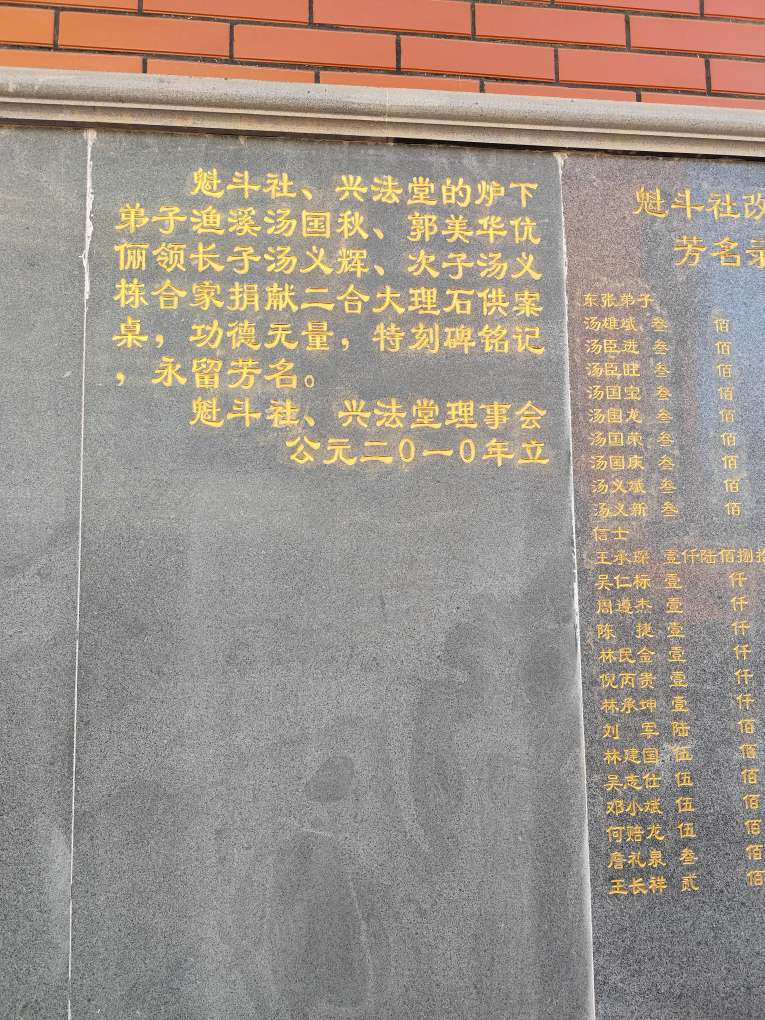 魁斗社、兴法堂的炉下
弟子渔溪汤国秋、郭美华伉
俪领长子汤义辉、次子汤义
栋合家捐献二合大理石供案
桌，功德无量，特刻碑铭记
，永留芳名。
魁斗社、兴法堂理事会
公元二0一0年立
魁斗社改
芳名录
东张弟子
汤雄斌 叁 佰
汤臣进 叁 佰
汤臣旺 叁 佰
汤国宝 叁 佰
汤国龙 叁 佰
汤国荣 叁 佰
汤国庚 叁 佰
汤义斌 叁 佰
汤义新 叁 佰
信士
王承琛 壹仟陆佰捌拾
吴仁标 壹 仟
周遵杰 壹 仟
陈 捷 壹 仟
林民金 壹 仟
倪丙贵 壹 仟
林承坤 壹 仟
刘 军 陆 佰
林建国 伍 佰
吴志仕 伍 佰
邓小斌 伍 佰
何赔龙 伍 佰
詹礼泉 叁 佰
王长祥 贰 佰